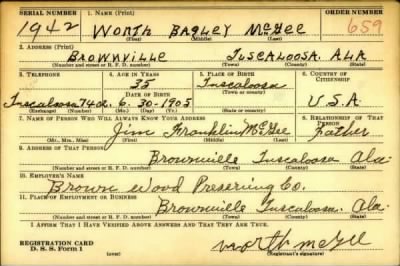 SERIAL NUMBER 1. NAME (Print) ORDER NUMBER
1942 WORTH BAGLEY McGEE 659
(First) (Middle) (Last)
2. ADDRESS (Print)
BROWNVILLE TUSCALOOSA, ALA
(Number and street or R. F. D. number) (Town) (County) (State)
3. TELEPHONE 4. AGE IN YEARS 5. PLACE OF BIRTH 6. COUNTRY OF CITIZENSHIP
35 Tuscaloosa
DATE OF BIRTH (Town or county)
Tuscaloosa 6-30-1905 U.S.A.
(Exchange) (Number) (Mo.) (Day) (Yr.) (State or country)
7. NAME OF PERSON WHO WILL ALWAYS KNOW YOUR ADDRESS 8. RELATIONSHIP OF THAT PERSON
Jim Franklin McGee Father
(Mr., Mrs., Miss) (First) (Middle) (Last)
9. ADDRESS OF THAT PERSON
Brownville Tuscaloosa Ala.
(Number and street or R. F. D. number) (Town) (County) (State)
10. EMPLOYER'S NAME
Brown Wood Preserving Co.
11. PLACE OF EMPLOYMENT OR BUSINESS
Brownville Tuscaloosa. Ala.
(Number and street or R. F. D. number) (Town) (County) (State)
I AFFIRM THAT I HAVE VERIFIED ABOVE ANSWERS AND THAT THEY ARE TRUE.
REGISTRATION CARD
D. S. S. Form 1
Worth McGee
(Registrant's signature)